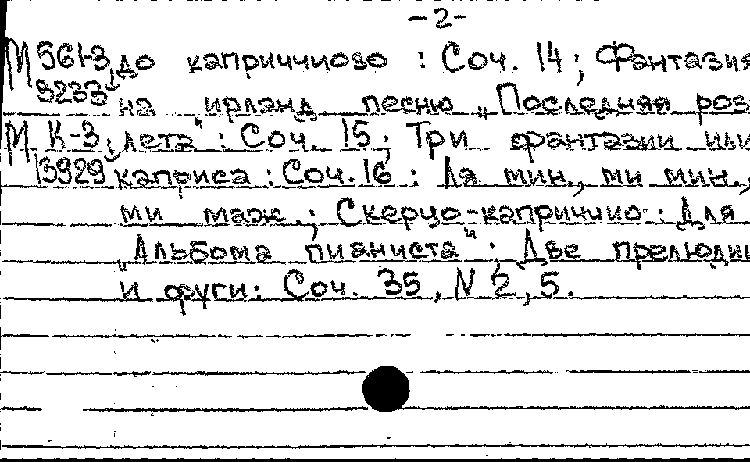 -2-
М 561-3, до каприччиозо : Соч. 14 ; Фантазия
9233 на ирланд песню „Последняя роз
М К-3, лета" : Соч. 15 ; Три фантазии или
13929 каприса : Соч. 16 : Ля мин., ми мин.,
ми маж. ; Скерцо-капричиио : Для
„Альбома пианиста" ; Две прелюдии
и фуги : Соч. 35, N 2, 5.